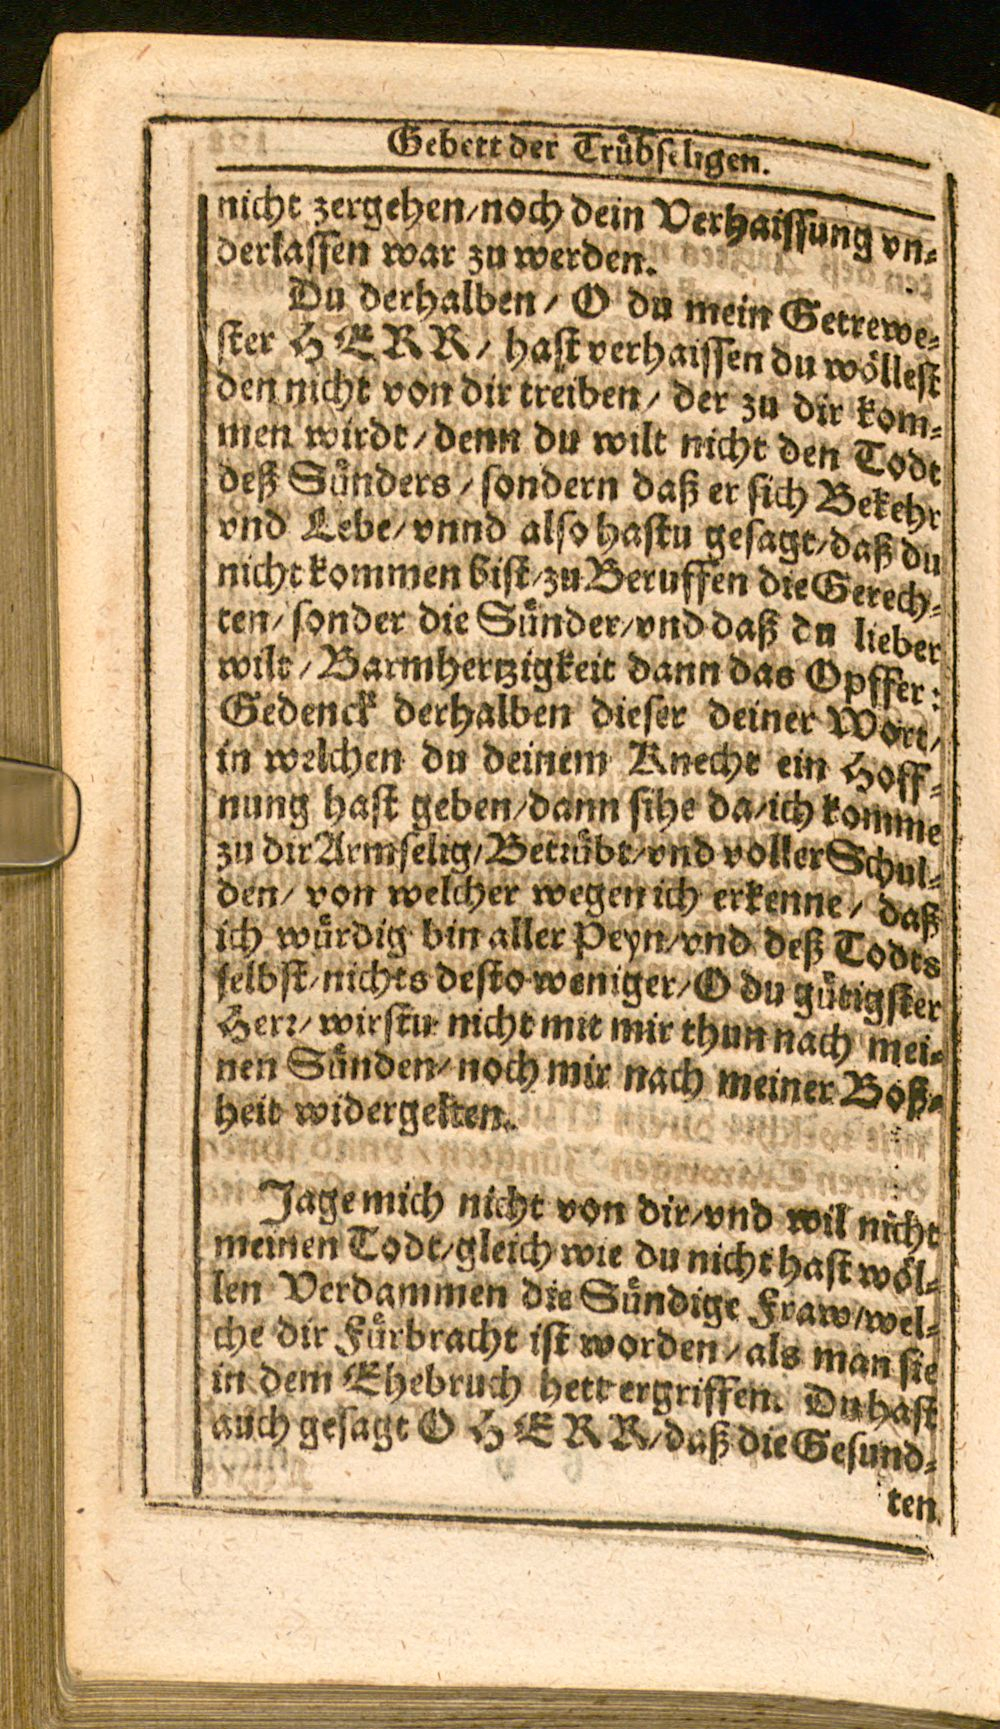 Gebett der Trübseligen.
nicht zergehen/noch dein Verhaissung vn⸗
derlassen war zu werden.
Du derhalben / O du mein Getrewe⸗
ster HERR / hast verhaissen du wöllest
den nicht von dir treiben / der zu dir kom⸗
men wirdt / denn du wilt nicht den Todt
deß Sünders / sondern daß er sich Bekehr
vnd Lebe/ vnnd also hastu gesagt/daß du
nicht kommen bist/zu Beruffen die Gerech⸗
ten/ sonder die Sünder/vnd daß du lieber
wilt / Barmhertzigkeit dann das Opffer:
Gedenck derhalben dieser deiner Wort/
in welchen du deinem Knecht ein Hoff⸗
nung hast geben/dann sihe da/ich komme
zu dir Armselig/Betrübt/vnd voller Schul⸗
den/ von welcher wegen ich erkenne / daß
ich würdig bin aller Peyn/vnd deß Todts
selbst/nichts desto weniger/O du gütigster
Herr/ wirstu nicht mit mir thun nach mei⸗
nen Sünden/noch mir nach meiner Boß⸗
heit widergelten.
Jage mich nicht von dir/vnd wil nicht
meinen Todt/gleich wie du nicht hast wöl⸗
len Verdammen die Sündige Fraw/wel⸗
che dir Fürbracht ist worden / als man sie
in dem Ehebruch hett ergriffen. Du hast
auch gesagt O HERR/daß die Gesund⸗
ten